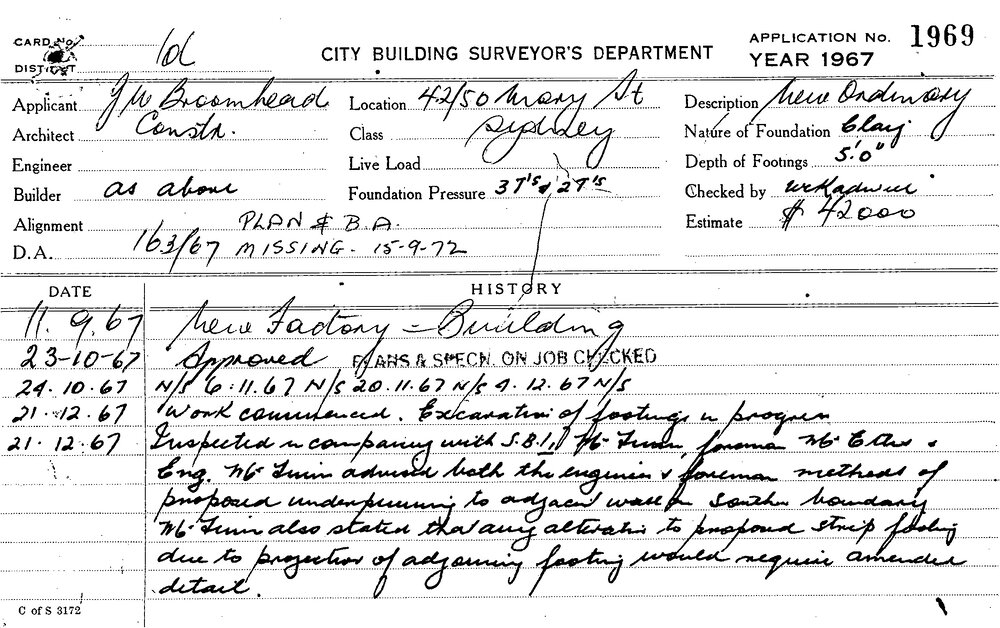 CARD No. 1d
CITY BUILDING SURVEYOR'S DEPARTMENT
APPLICATION No. 1969
DISTRICT
YEAR 1967
Applicant J W Broomhead
Location 42/50 Mary St
Description New Ordinary
Architect Constr.
Class Sydney
Nature of Foundation Clay
Engineer
Live Load
Depth of Footings 5'.0"
Builder as above
Foundation Pressure 3T's & 2T's
Checked by
Alignment PLAN & B.A.
Estimate $ 42000
D.A. 163/67 MISSING. 15-9-72
DATE HISTORY
11. 9. 67 New Factory = Building
23-10-67 Approved PLANS & SPECN. ON JOB CHECKED
24.10.67 N/S 6.11.67 N/S 20.11.67 N/S 4.12.67 N/S
21.12.67 Work commenced. Excavation of footings in progress
21.12.67 Inspected in company with S.B.I. foreman &
Eng. advised both the engineer & foreman methods of
proposed underpinning to adjacent wall on Southern boundary
also stated that any alteration to proposed strip footing
due to projection of adjoining footing would require amended
detail.
C of S 3172